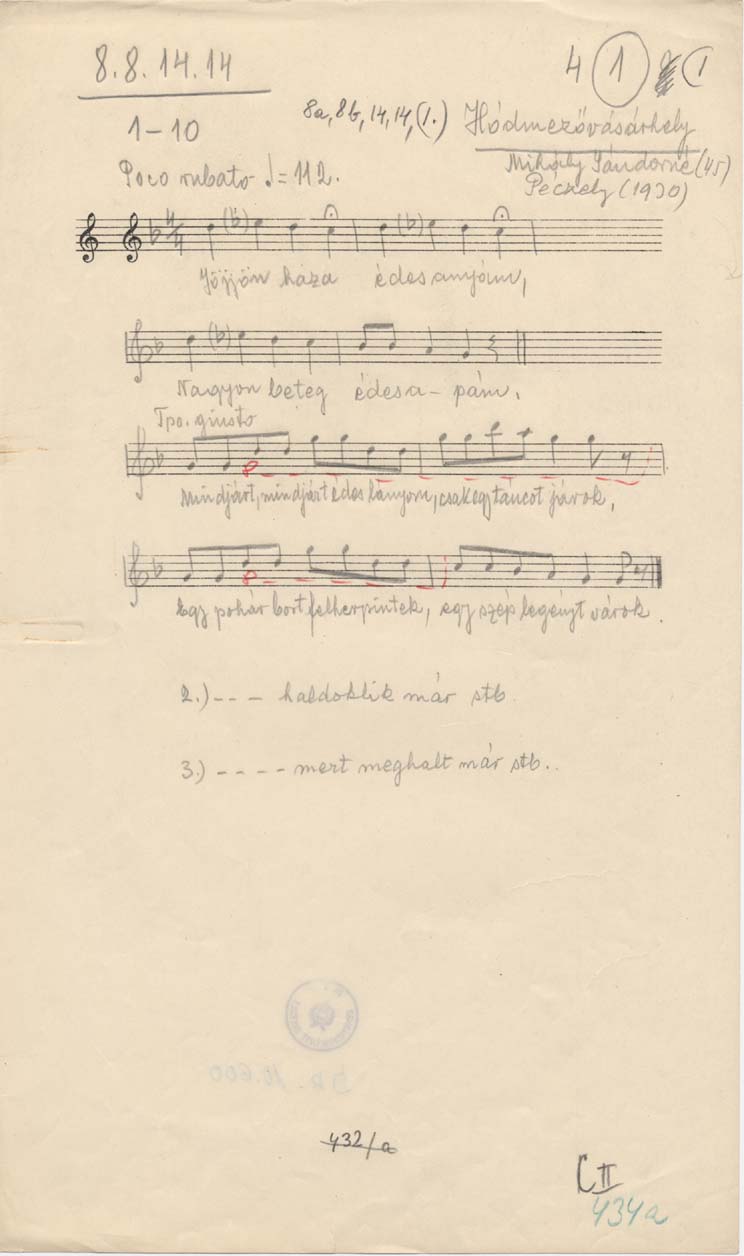 8.8.14.14
4 1 1
1-10
8a, 8b, 14, 14, (1.)
Hódmezővásárhely
Mihály Sándorné (45)
Poco rubato ♩= 112.
Péczely (1930)
4/4
Jöjjön haza édesanyám,
Nagyon beteg édesa-pám.
Tpo. giusto
Mindjárt, mindjárt édes lányom, csak egy táncot járok,
Egy pohár bort felherpintek, egy szép legényt várok.
2.) --- haldoklik már stb.
3.) ---- mert meghalt már stb..
432/a
C II
434a